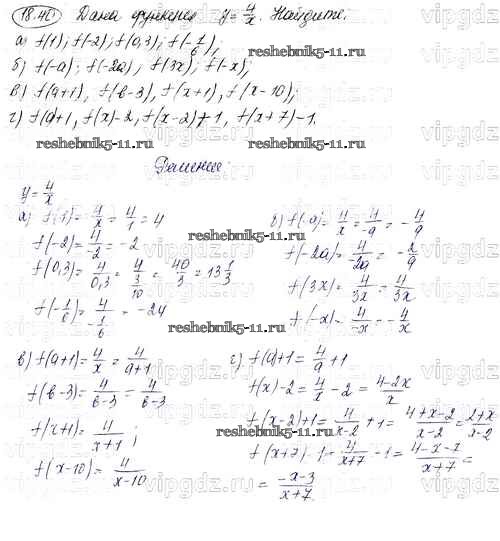 18.40 Дана функция y = 4/x. Найдите:
а) f(1); f(-2); f(0,3); f(-1/6);
б) f(-a); f(-2a); f(3x); f(-x);
в) f(a+1), f(b-3), f(x+1), f(x-10);
г) f(a)+1, f(x)-2, f(x-2)+1, f(x+7)-1.
reshebnik5-11.ru reshebnik5-11.ru
Решение:
y = 4/x
а) f(1) = 4/x = 4/1 = 4
f(-2) = 4/-2 = -2
f(0,3) = 4/0,3 = 4/(3/10) = 40/3 = 13 1/3
f(-1/6) = 4/(-1/6) = -24
б) f(-a) = 4/x = 4/-a = -4/a
f(-2a) = 4/-2a = -2/a
f(3x) = 4/3x = 4/3x
f(-x) = 4/-x = -4/x
reshebnik5-11.ru
reshebnik5-11.ru
в) f(a+1) = 4/x = 4/a+1
f(b-3) = 4/b-3 = 4/b-3
f(x+1) = 4/x+1;
f(x-10) = 4/x-10
г) f(a)+1 = 4/a + 1
f(x)-2 = 4/x - 2 = 4-2x/x
f(x-2)+1 = 4/x-2 + 1 = 4+x-2/x-2 = 2+x/x-2
f(x+7)-1 = 4/x+7 - 1 = 4-x-7/x+7 =
= -x-3/x+7
reshebnik5-11.ru
vipgdz.ru